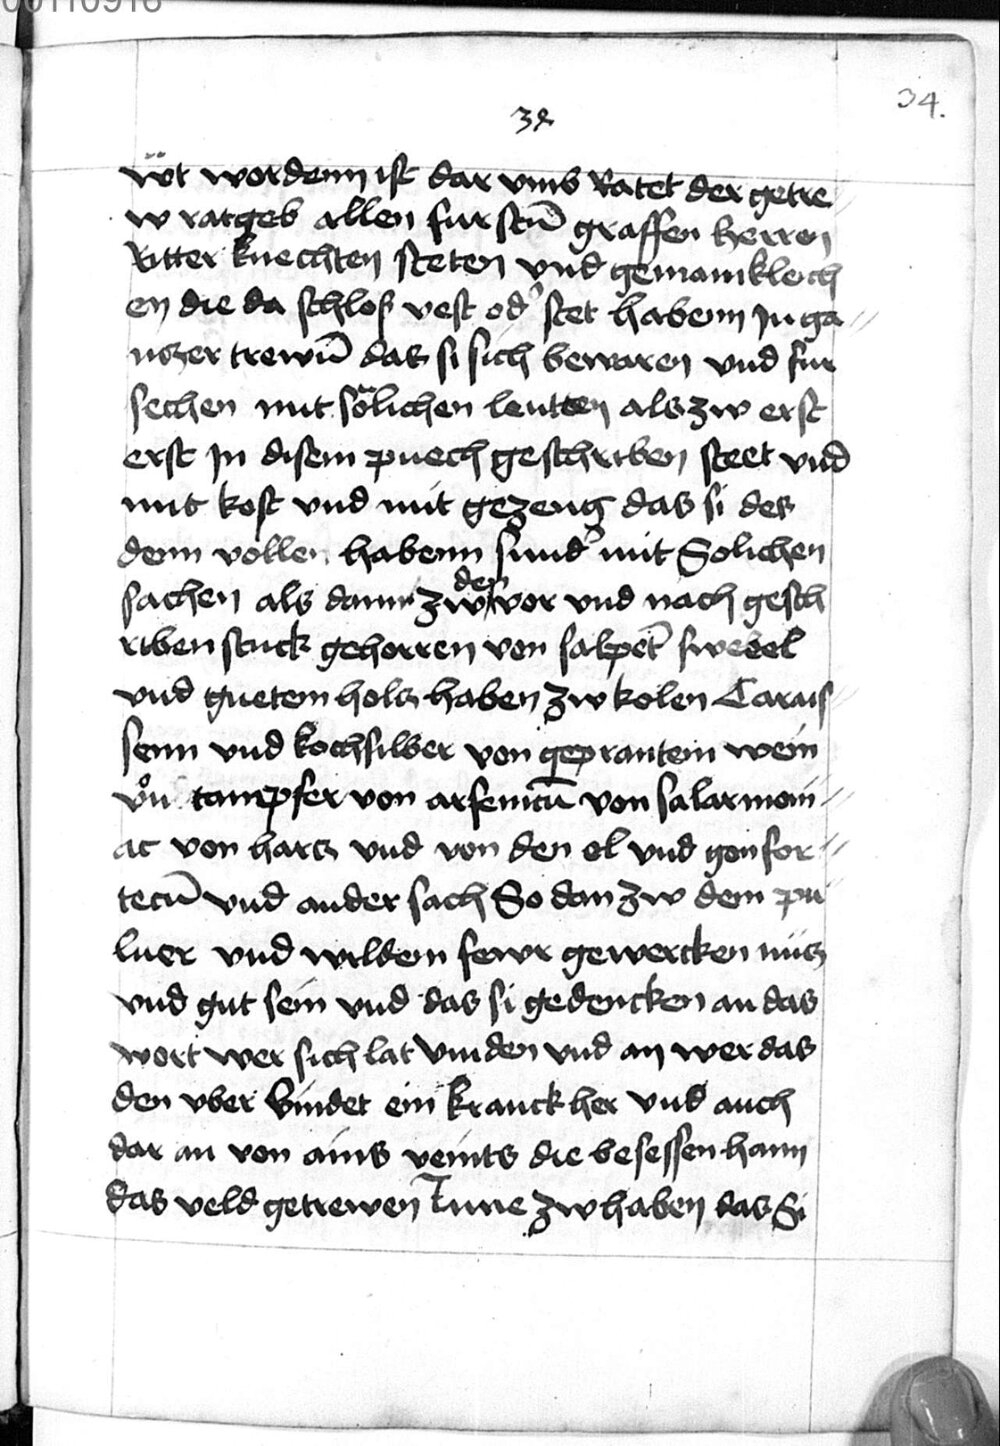 00110916
34.
34
wt wordenn ist dar vmb Ratet der getre
w ratgeb allen furstn̄ graffen herren
Ritter knechten steten vnd gemainklich
en die da schloß vest od stet habenn In ga
nczer trewn̄ das si sich bewaren vnd fur
sechen mit sölichen leutten als zw erst
erst In disem puech geschriben steet vnd
mit kost vnd mit gezeug das si des
denn vollen habenn sund mit Solichen
sachen als dann zw den vor vnd nach gesch
riben stuck gehorren von salpet swebel
vnd guetem holcz haben zw kolen
senn vnd kochsilber von geprantem wein
von campfer von arsenicū von salarmoni
ac von harcz vnd von den el vnd gonfor
tecū vnd ander sach So dan zw dem pu
luer vnd wildem fewr gewercken nucz
vnd gut sein vnd das si gedencken an das
wort wer sich lat vinden vnd an wer das
den vber bindet ein kranck her vnd auch
dar an von ains veints die besessen hann
das veld getrewen zw haben das Si